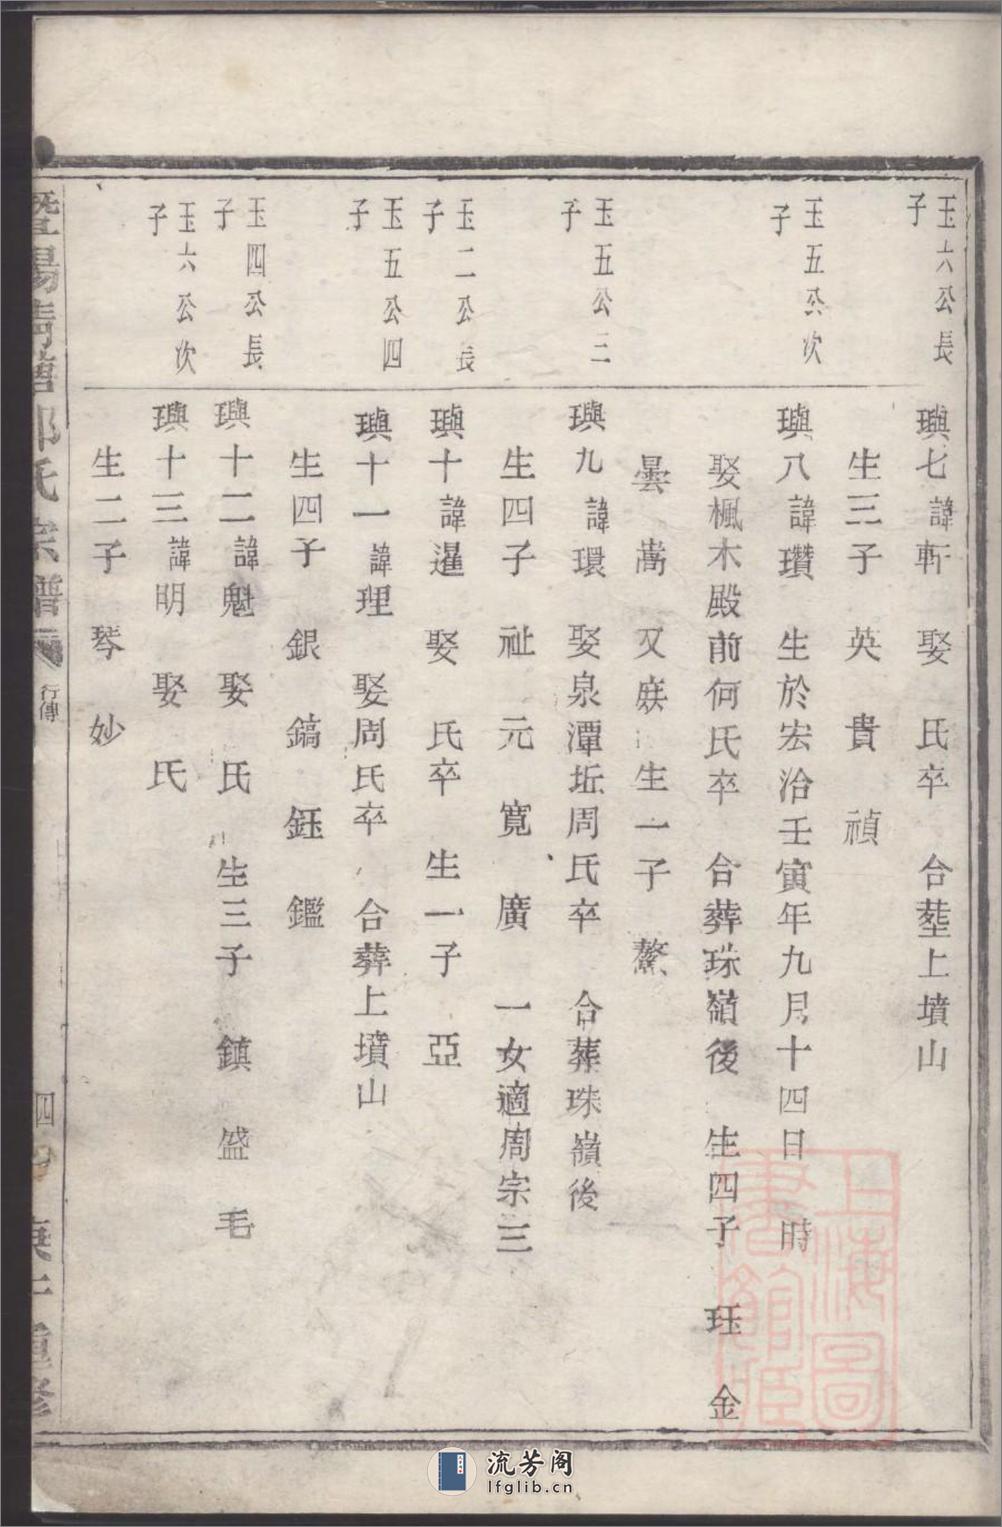 玉六公長
子
璵七諱軒 娶 氏卒 合塟上墳山
生三子 英 貴 禎
玉五公次
子
璵八諱瓚 生於宏治壬寅年九月十四日 時
娶楓木殿前何氏卒 合葬珠嶺後 生四子 珏 金
曇 嵩 又庶生一子 鰲
玉五公三
子
璵九諱環 娶泉潭坵周氏卒 合葬珠嶺後
生四子 祉 元 寬 廣 一女適周宗三
玉二公長
子
璵十諱暹 娶 氏卒 生一子 亞
玉五公四
子
璵十一諱理 娶周氏卒 合葬上墳山
生四子 銀 鎬 鈺 鑑
玉四公長
子
璵十二諱魁 娶 氏 生三子 鎮 盛 毛
玉六公次
子
璵十三諱明 娶 氏
生二子 琴 妙
暨陽 氏宗譜 行傳 四 重修
上海圖
書館藏
流芳阁
lfglib.cn